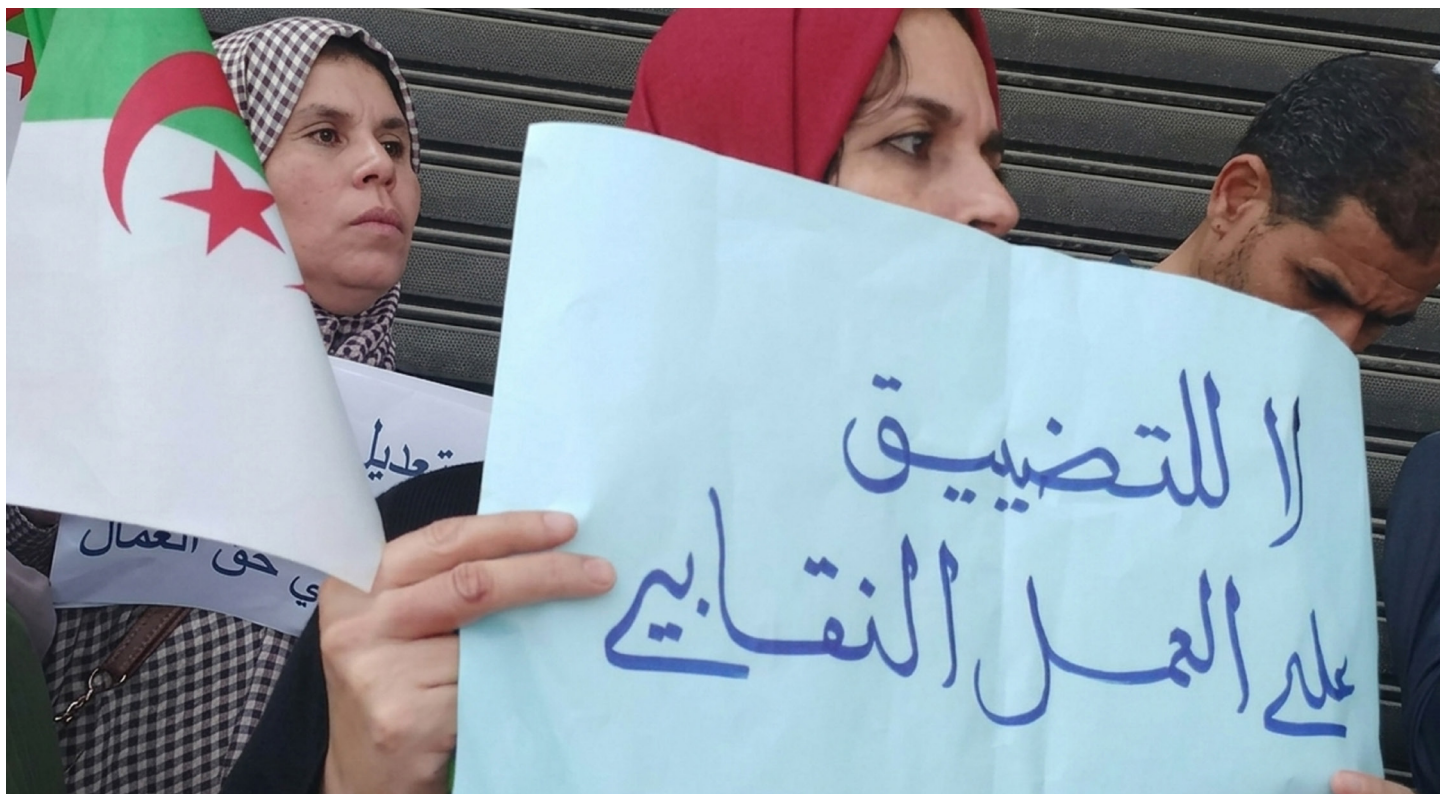 لا للتضييق
على العمل النقابي
تعديل
ي حق العمال